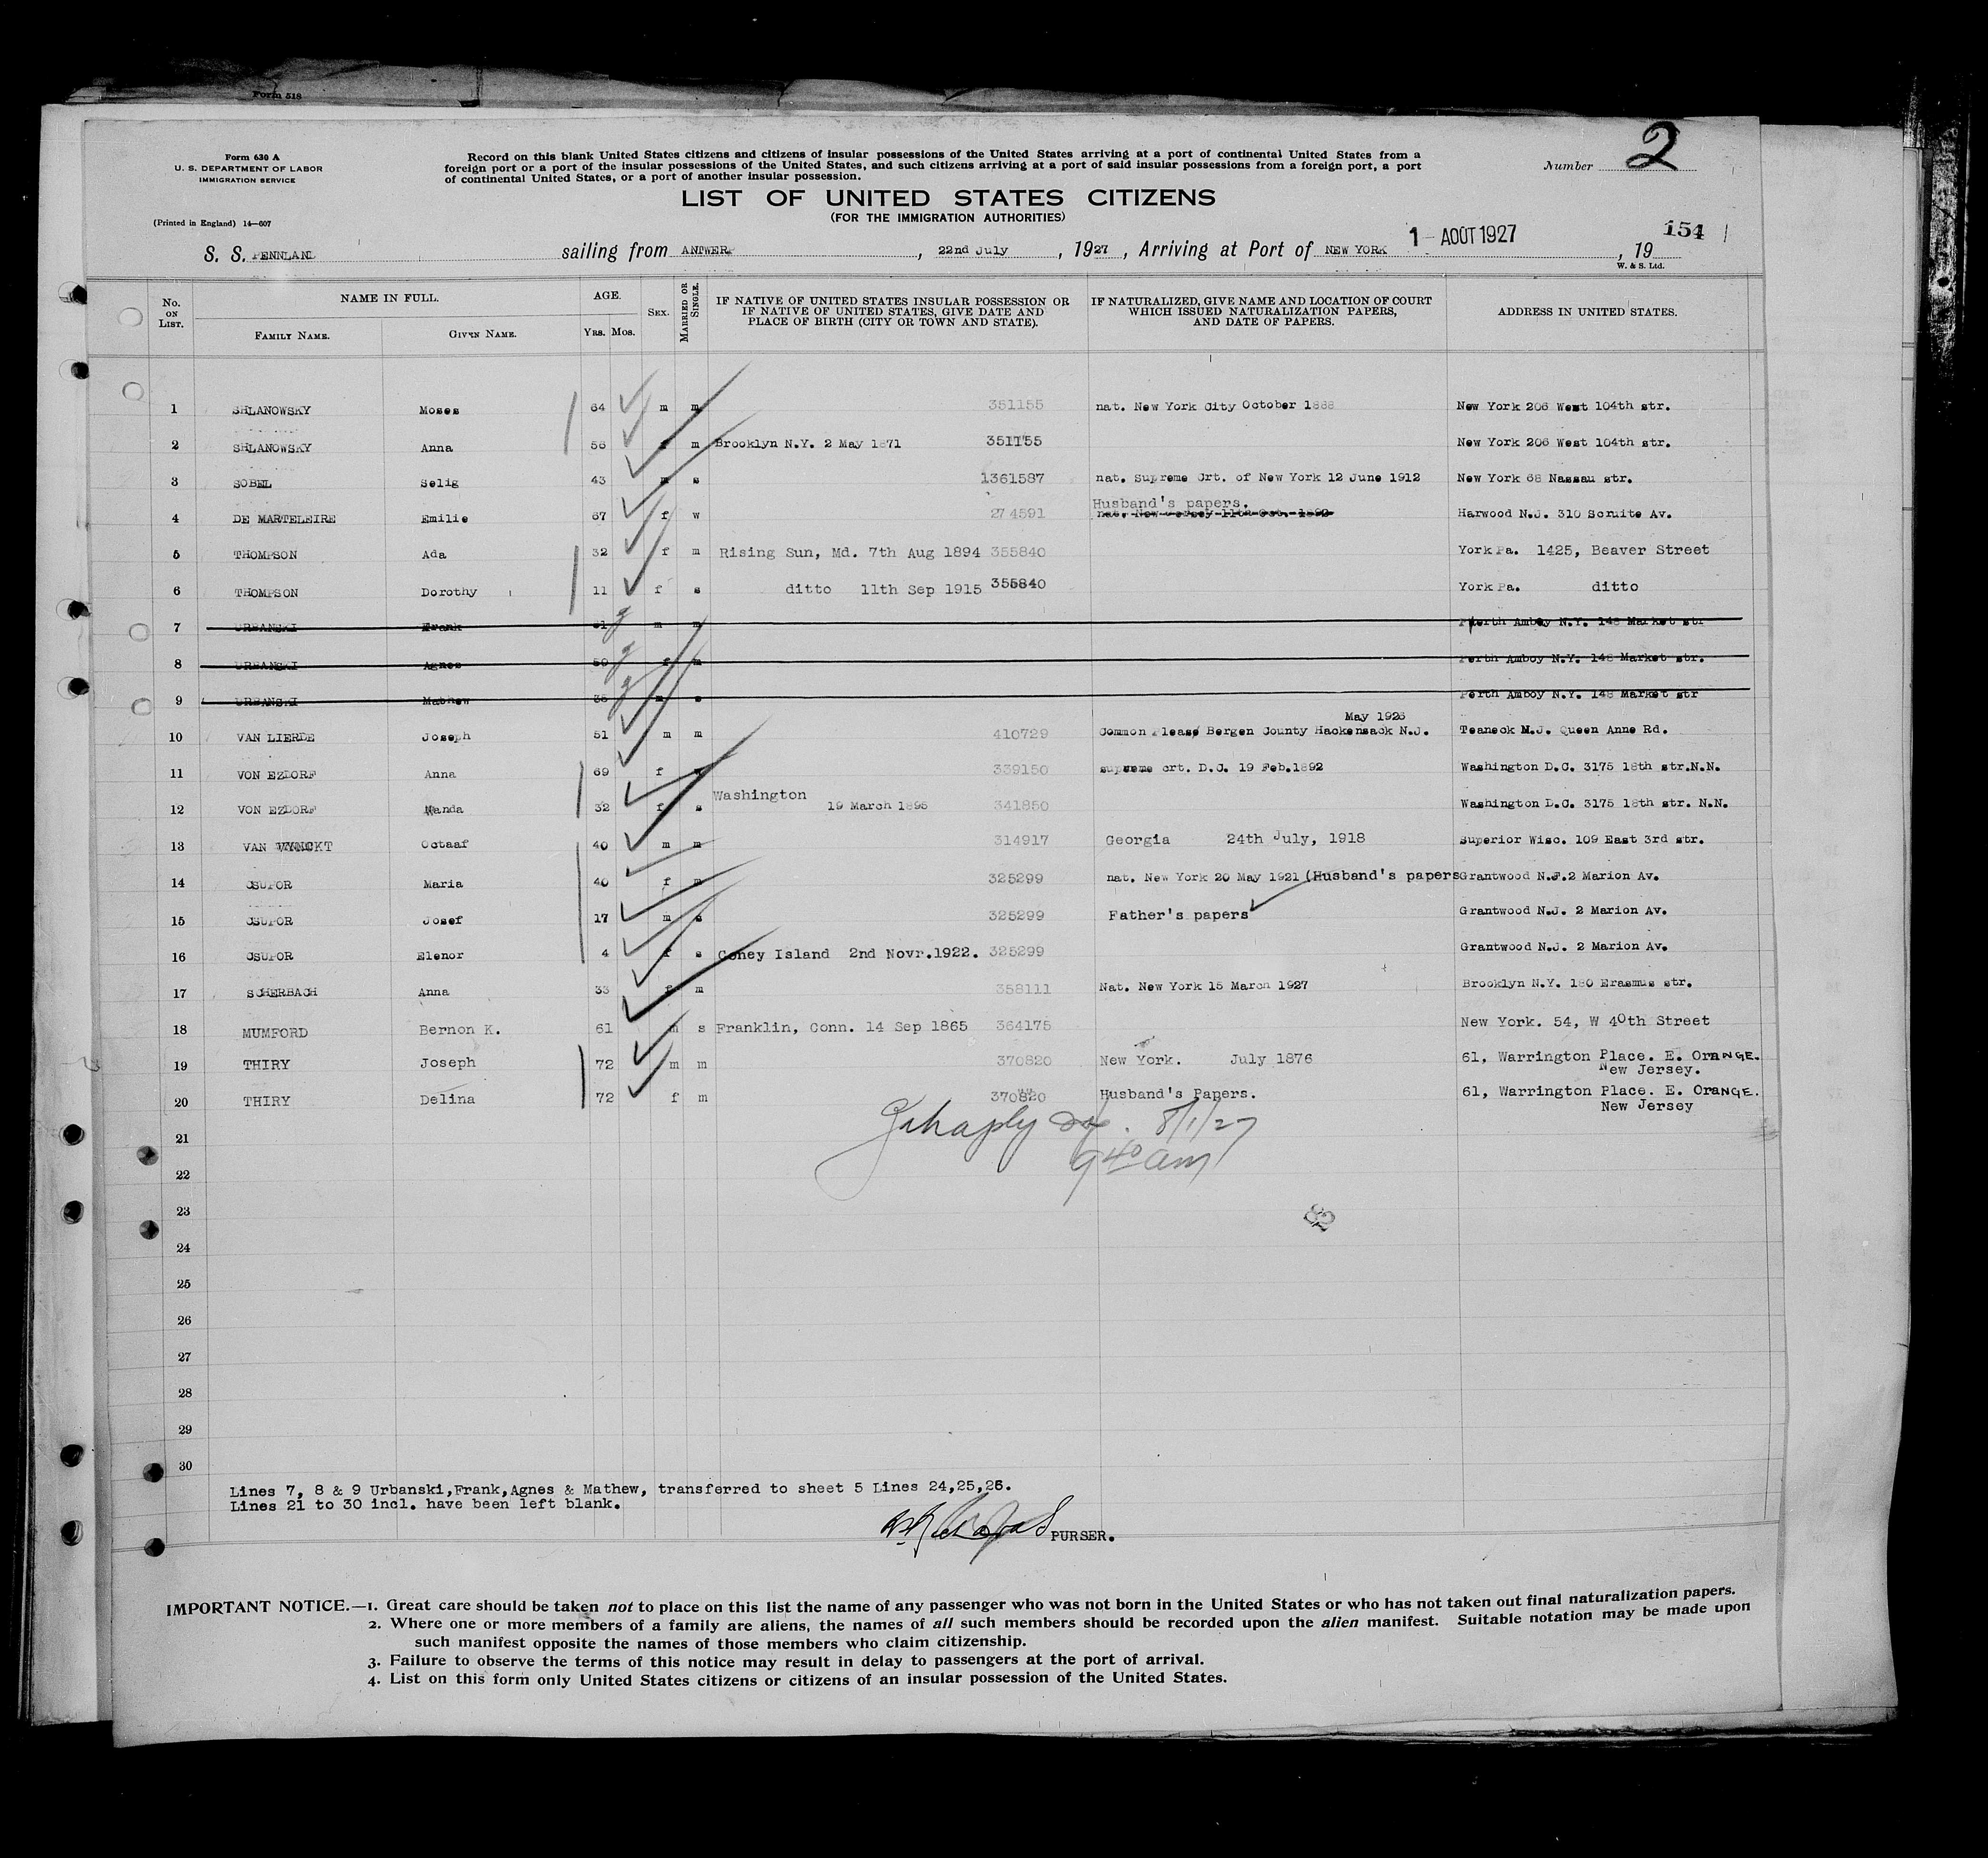 Form 518
Form 630 A
U. S. DEPARTMENT OF LABOR
IMMIGRATION SERVICE
(Printed in England) 14—607
Record on this blank United States citizens and citizens of insular possessions of the United States arriving at a port of continental United States from a
foreign port or a port of the insular possessions of the United States, and such citizens arriving at a port of said insular possessions from a foreign port, a port
of continental United States, or a port of another insular possession.
Number 2
LIST OF UNITED STATES CITIZENS
(FOR THE IMMIGRATION AUTHORITIES)
S. S. PENNLAND sailing from ANTWERP, 22nd July, 1927, Arriving at Port of NEW YORK 1 - AOÛT 1927, 19 154
W. & S. Ltd.
No. ON LIST. NAME IN FULL. FAMILY NAME. GIVEN NAME. AGE. YRS. MOS. SEX. MARRIED OR SINGLE. IF NATIVE OF UNITED STATES INSULAR POSSESSION OR IF NATIVE OF UNITED STATES, GIVE DATE AND PLACE OF BIRTH (CITY OR TOWN AND STATE). IF NATURALIZED, GIVE NAME AND LOCATION OF COURT WHICH ISSUED NATURALIZATION PAPERS, AND DATE OF PAPERS. ADDRESS IN UNITED STATES.
1 SHLANOWSKY Moses 64 m m 351155 nat. New York City October 1888 New York 206 West 104th str.
2 SHLANOWSKY Anna 56 f m Brooklyn N.Y. 2 May 1871 351155 New York 206 West 104th str.
3 SOBEL Selig 43 m s 1361587 nat. Supreme Crt. of New York 12 June 1912 New York 68 Nassau str.
Husband's papers.
4 DE MARTELEIRE Emilie 67 f w 274591 nat. New Jersey 11th Oct. 1892 Harwood N.J. 310 Scruite Av.
5 THOMPSON Ada 32 f m Rising Sun, Md. 7th Aug 1894 355840 York Pa. 1425, Beaver Street
6 THOMPSON Dorothy 11 f s ditto 11th Sep 1915 355840 York Pa. ditto
7 URBANSKI Frank 51 m m Perth Amboy N.Y. 148 Market str
8 URBANSKI Agnes 50 f m Perth Amboy N.Y. 148 Market str.
9 URBANSKI Mathew 35 m s Perth Amboy N.Y. 148 Market str
May 1926
10 VAN LIERDE Joseph 51 m m 410729 Common Please Bergen County Hackensack N.J. Teaneck N.J. Queen Anne Rd.
11 VON EZDORF Anna 69 f 339150 supreme crt. D.C. 19 Feb.1892 Washington D.C. 3175 18th str.N.N.
Washington
12 VON EZDORF Wanda 32 f s 19 March 1895 341850 Washington D.C. 3175 18th str. N.N.
13 VAN VYNCKT Octaaf 40 m m 314917 Georgia 24th July, 1918 Superior Wisc. 109 East 3rd str.
14 CSUPOR Maria 40 f m 325299 nat. New York 20 May 1921 (Husband's papers Grantwood N.J. 2 Marion Av.
15 CSUPOR Josef 17 m s 325299 Father's papers Grantwood N.J. 2 Marion Av.
16 CSUPOR Elenor 4 f s Coney Island 2nd Novr.1922. 325299 Grantwood N.J. 2 Marion Av.
17 SCHERBACH Anna 33 f m 358111 Nat. New York 15 March 1927 Brooklyn N.Y. 180 Erasmus str.
18 MUMFORD Bernon K. 61 m s Franklin, Conn. 14 Sep 1865 364175 New York. 54, W 40th Street
19 THIRY Joseph 72 m m 370820 New York. July 1876 61, Warrington Place. E. Orange.
New Jersey.
20 THIRY Delina 72 f m 370820 Husband's Papers. 61, Warrington Place. E. Orange.
New Jersey
21
8/1/27
22
9 40 am
23
82
24
25
26
27
28
29
30
Lines 7, 8 & 9 Urbanski,Frank,Agnes & Mathew, transferred to sheet 5 Lines 24,25,26.
Lines 21 to 30 incl. have been left blank.
PURSER.
IMPORTANT NOTICE.—1. Great care should be taken not to place on this list the name of any passenger who was not born in the United States or who has not taken out final naturalization papers.
2. Where one or more members of a family are aliens, the names of all such members should be recorded upon the alien manifest. Suitable notation may be made upon
such manifest opposite the names of those members who claim citizenship.
3. Failure to observe the terms of this notice may result in delay to passengers at the port of arrival.
4. List on this form only United States citizens or citizens of an insular possession of the United States.